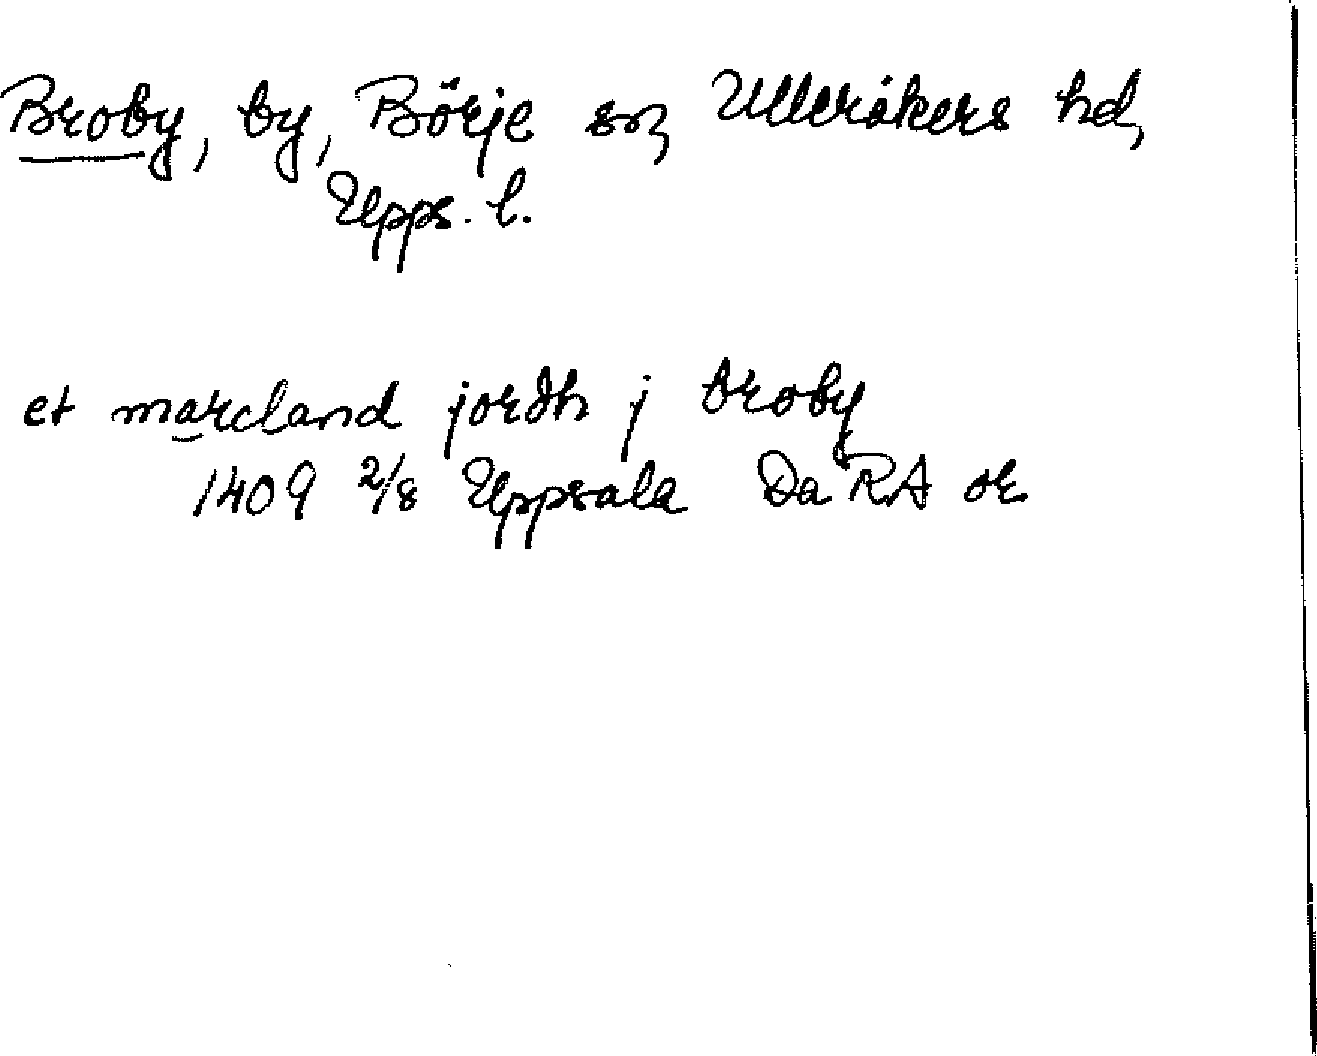 Broby, by, Börje sn, Ulleråkers hd,
Upps. l.
et marcland jordh j broby
1409 2/8 Uppsala Da RA or